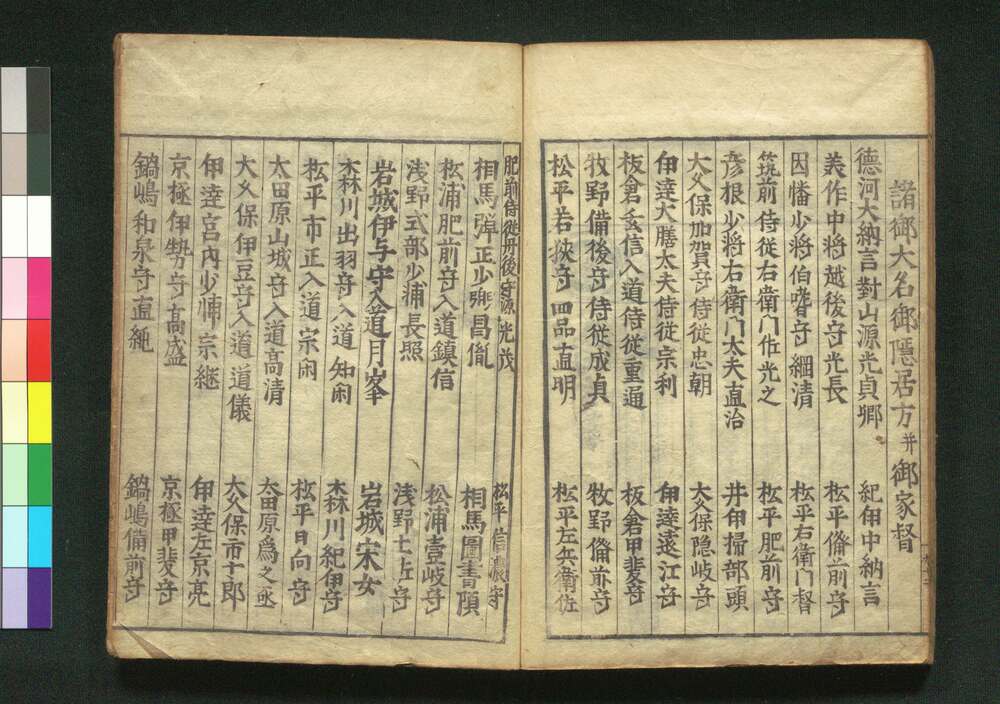 諸御大名御隠居方并御家督
徳河大納言對山源光貞卿 紀伊中納言
美作中将越後守光長 松平備前守
因幡少将伯耆守綱清 松平右衛門督
筑前侍従右衛門佐光之 松平肥前守
彦根少将右衛門太夫直治 井伊掃部頭
大久保加賀守侍従忠朝 大久保隠岐守
伊達大膳太夫侍従宗利 伊達遠江守
板倉 信入道侍従重通 板倉甲斐守
牧野備後守侍従成貞 牧野備前守
松平若狭守四品直明 松平左兵衛佐
肥前侍従丹後守源光茂 松平信濃守
相馬弾正少弼昌胤 相馬圖書頭
松浦肥前守入道鎮信 松浦壹岐守
浅野式部少輔長照 浅野土佐守
岩城伊与守入道月峯 岩城宋女
森川出羽守入道知闲 森川紀伊守
松平市正入道宗闲 松平日向守
太田原山城守入道高清 太田原為之丞
大久保伊豆守入道道儀 大久保市十郎
伊達宮内少輔宗継 伊達左京亮
京極伊勢守高盛 京極甲斐守
鍋嶋和泉守直縄 鍋嶋備前守